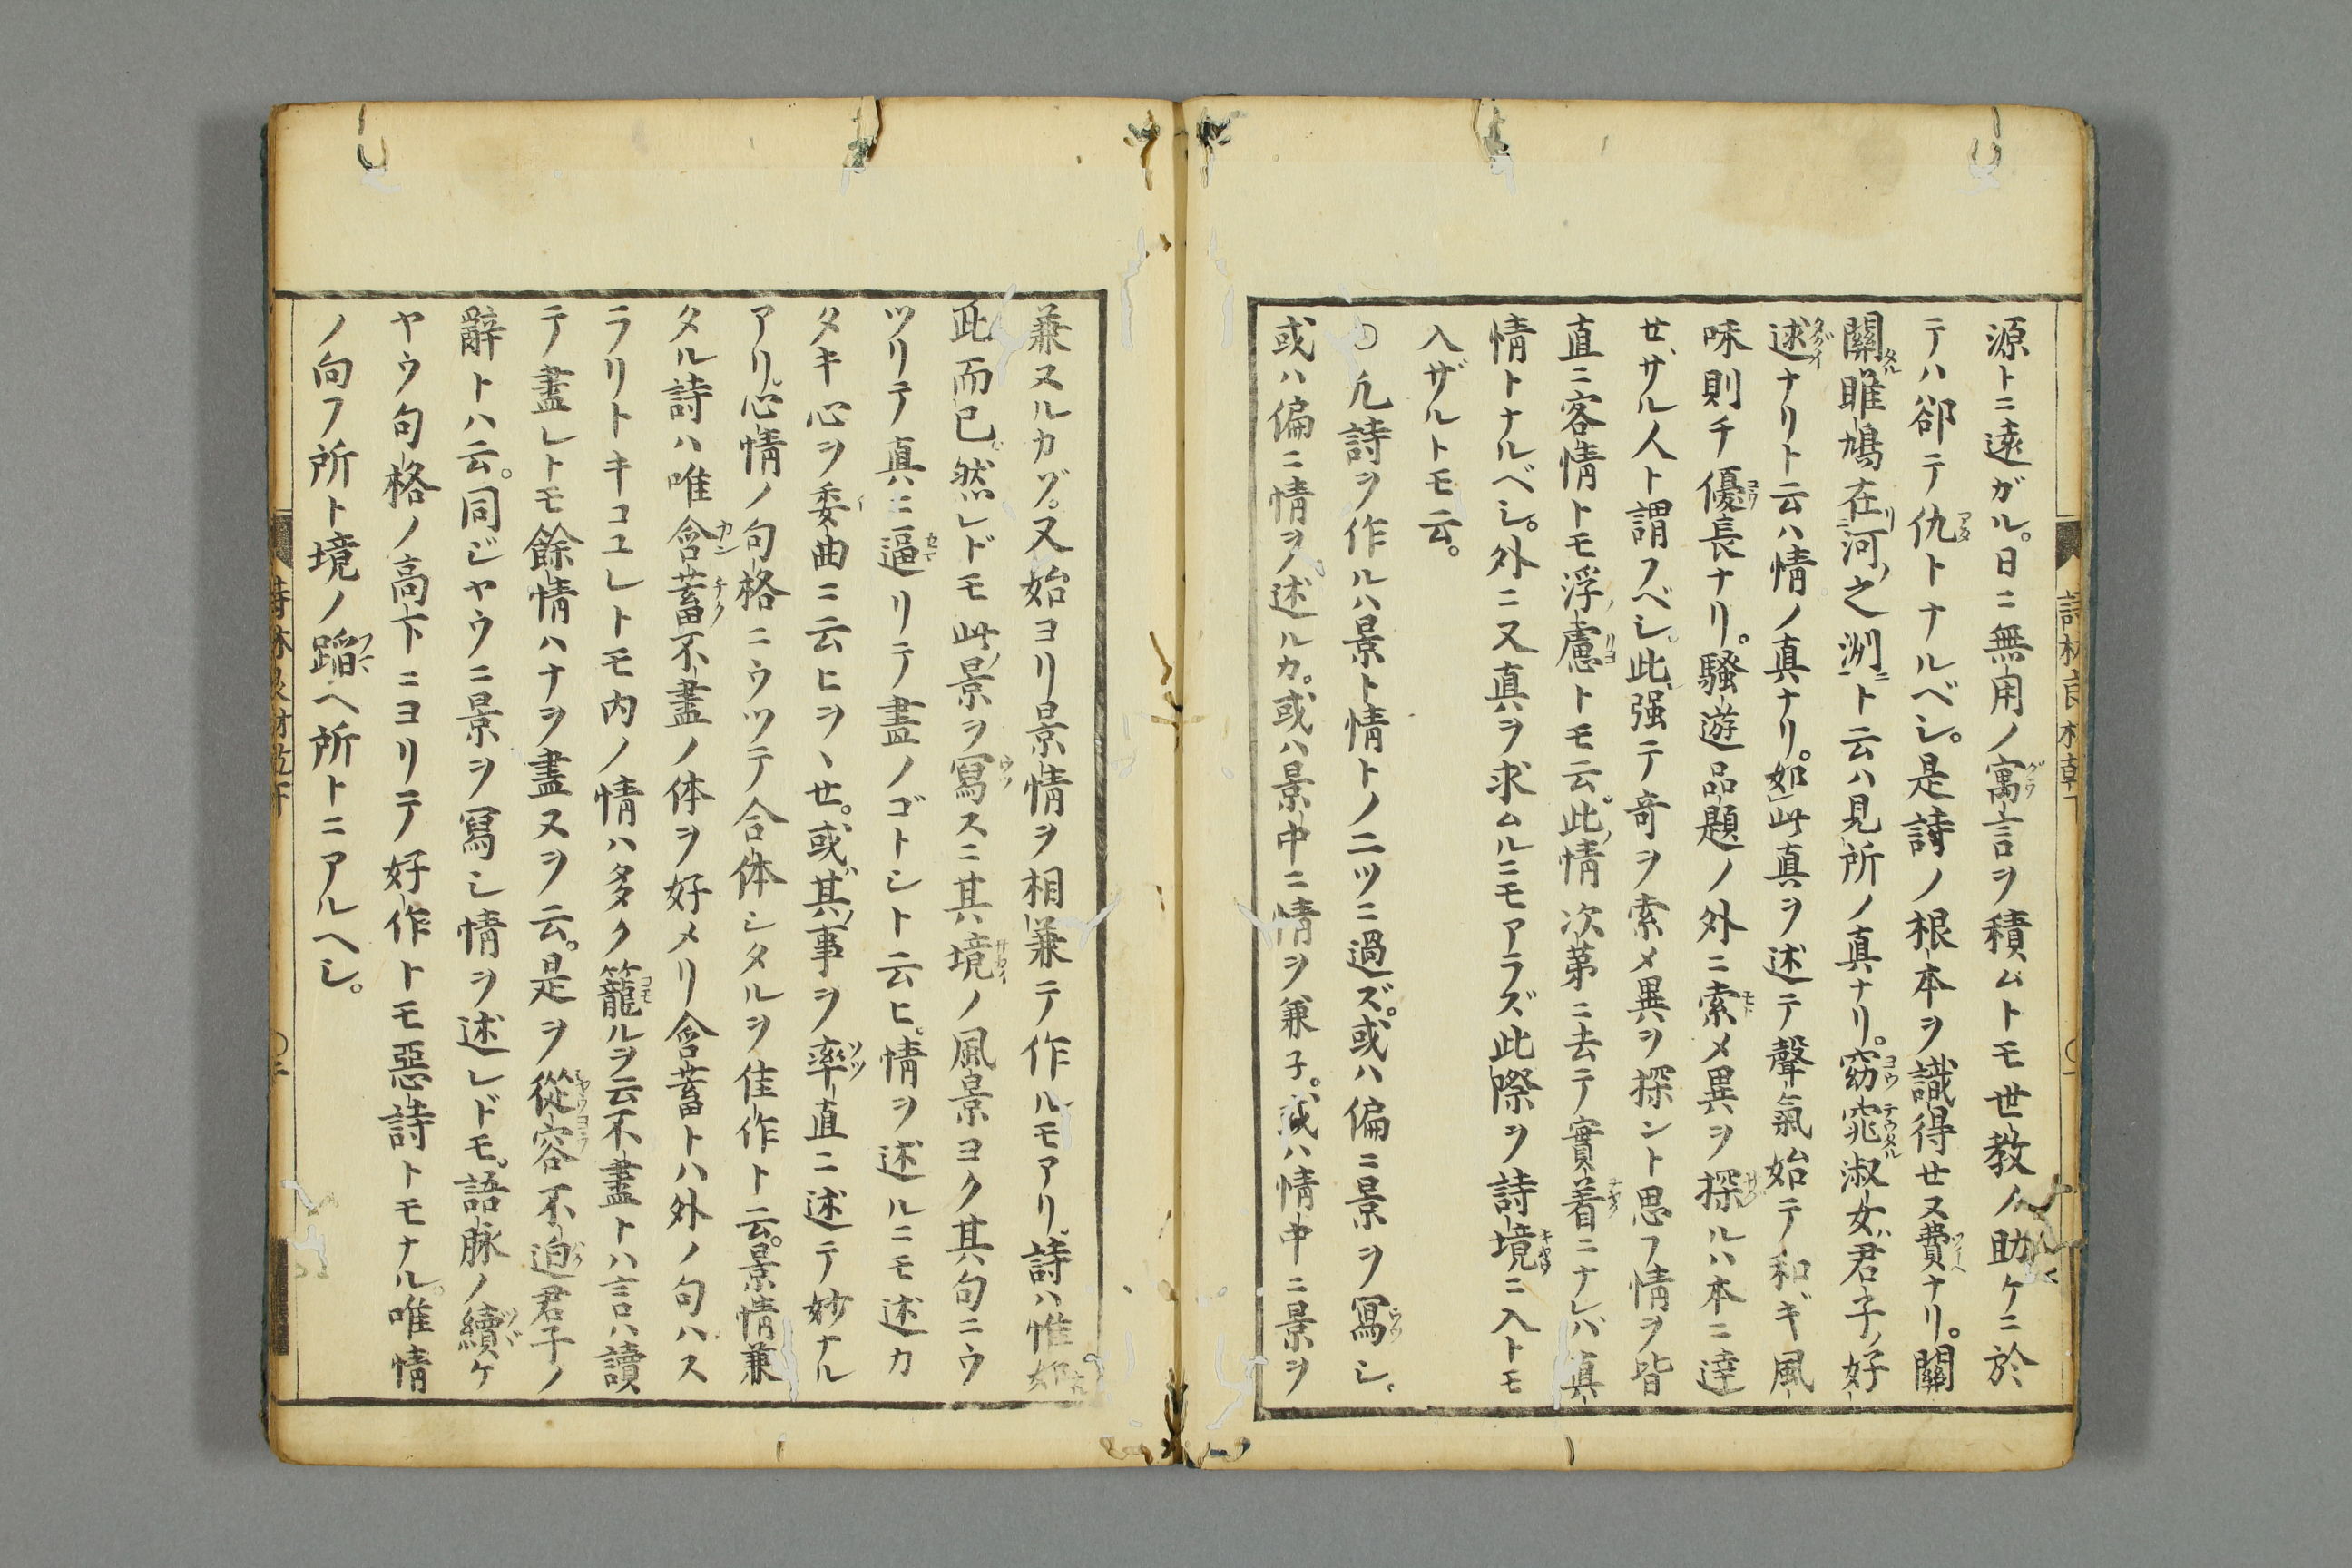 源トニ遠ガル。日ニ無用ノ寓言ヲ積ムトモ世教ノ助ケニ於
テハ郤テ仇トナルベシ。是詩ノ根本ヲ識得セヌ費ナリ。關
關雎鳩在河之洲ト云ハ見所ノ真ナリ。窈窕淑女君子ノ好
逑ナリト云ハ情ノ真ナリ。如此真ヲ述テ聲氣始テ和ギ風
味則チ優長ナリ。騷遊品題ノ外ニ索メ異ヲ探ルハ本ニ達
せザル人ト謂フベシ。此强テ奇ヲ索メ異ヲ探ント思フ情ヲ皆
直ニ客情トモ浮慮トモ云。此情次第ニ去テ實着ニナレバ真
情トナルベシ。外ニ又真ヲ求ムルニモアラズ此際ヲ詩境ニ入トモ
入ザルトモ云。
〇凢詩ヲ作ルハ景ト情トノ二ツニ過ズ。或ハ偏ニ景ヲ冩シ。
或ハ偏ニ情ヲノ述ルカ。或ハ景中ニ情ヲ兼子。或ハ情中ニ景ヲ
兼ヌルカヅ。又始ヨリ景情ヲ相兼テ作ルモアリ。詩ハ惟如
此而已。然レドモ此景ヲ冩スニ其境ノ風景ヨク其句ニウ
ツリテ真ニ逼リテ畫ノゴトシト云ヒ。情ヲ述ルニモ述カ
タキ心ヲ委曲ニ云ヒヲヽせ。或ハ其事ヲ率直ニ述テ妙ナル
アリ。心情ノ句格ニウツテ合体シタルヲ佳作ト云。景情兼
タル詩ハ唯含蓄不盡ノ体ヲ好メリ含蓄トハ外ノ句ハス
ラリトキコユレトモ内ノ情ハ多ク籠ルヲ云不盡トハ言ハ讀
テ盡レトモ餘情ハナヲ盡ヌヲ云。是ヲ從容不迫君子ノ
辭トハ云。同ジヤウニ景ヲ冩シ情ヲ述レドモ。語脉ノ續ケ
ヤウ句格ノ高下ニヨリテ好作トモ惡詩トモナル。唯情
ノ向フ所ト境ノ蹈ヘ所トニアルヘシ。